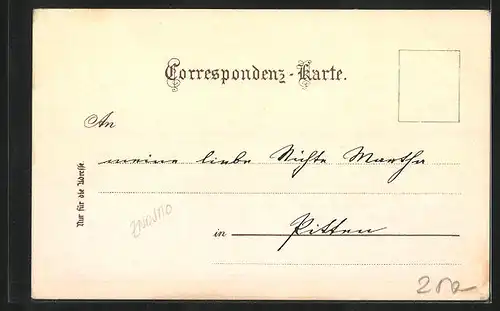 Correspondenz-Karte.
An
meine liebe Nichte Martha
Nur für die Adresse.
in Pitten